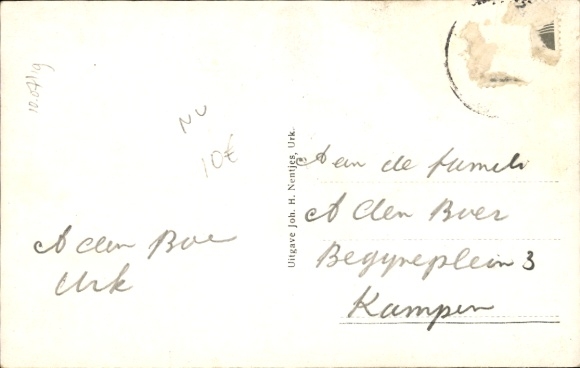 10.07119
NL
10€
A den Boe
Urk
Uitgave Joh. H. Nentjes, Urk.
Aan de fameli
A den Boer
Begyneplein 3
Kampen